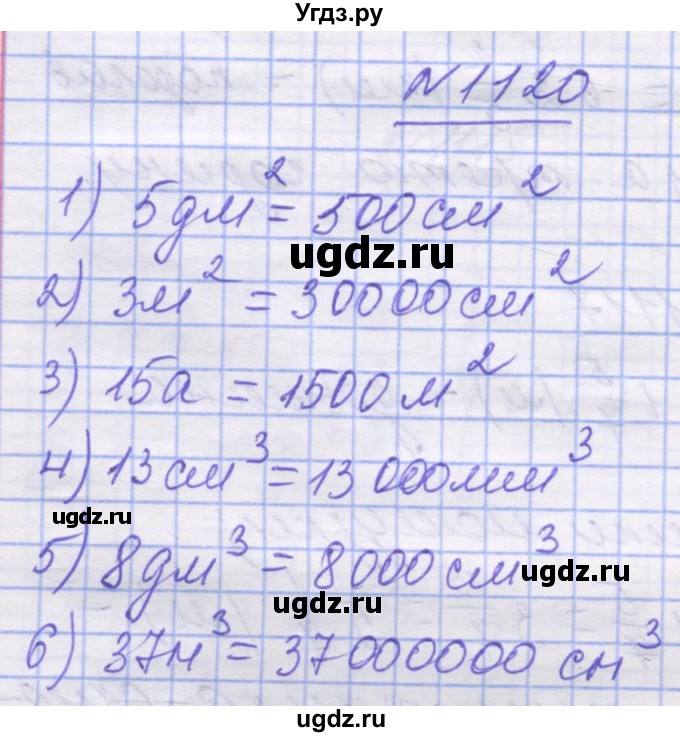 Угдз.ру
N 1120
1) 5дм² = 500см²
ugdz.ru
2) 3м² = 30000см²
3) 15а = 1500м²
4) 13см³ = 13000мм³
ugdz.ru
5) 8дм³ = 8000см³
ugdz.ru
ugdz.ru
6) 37м³ = 37000000 см³
ugdz.ru